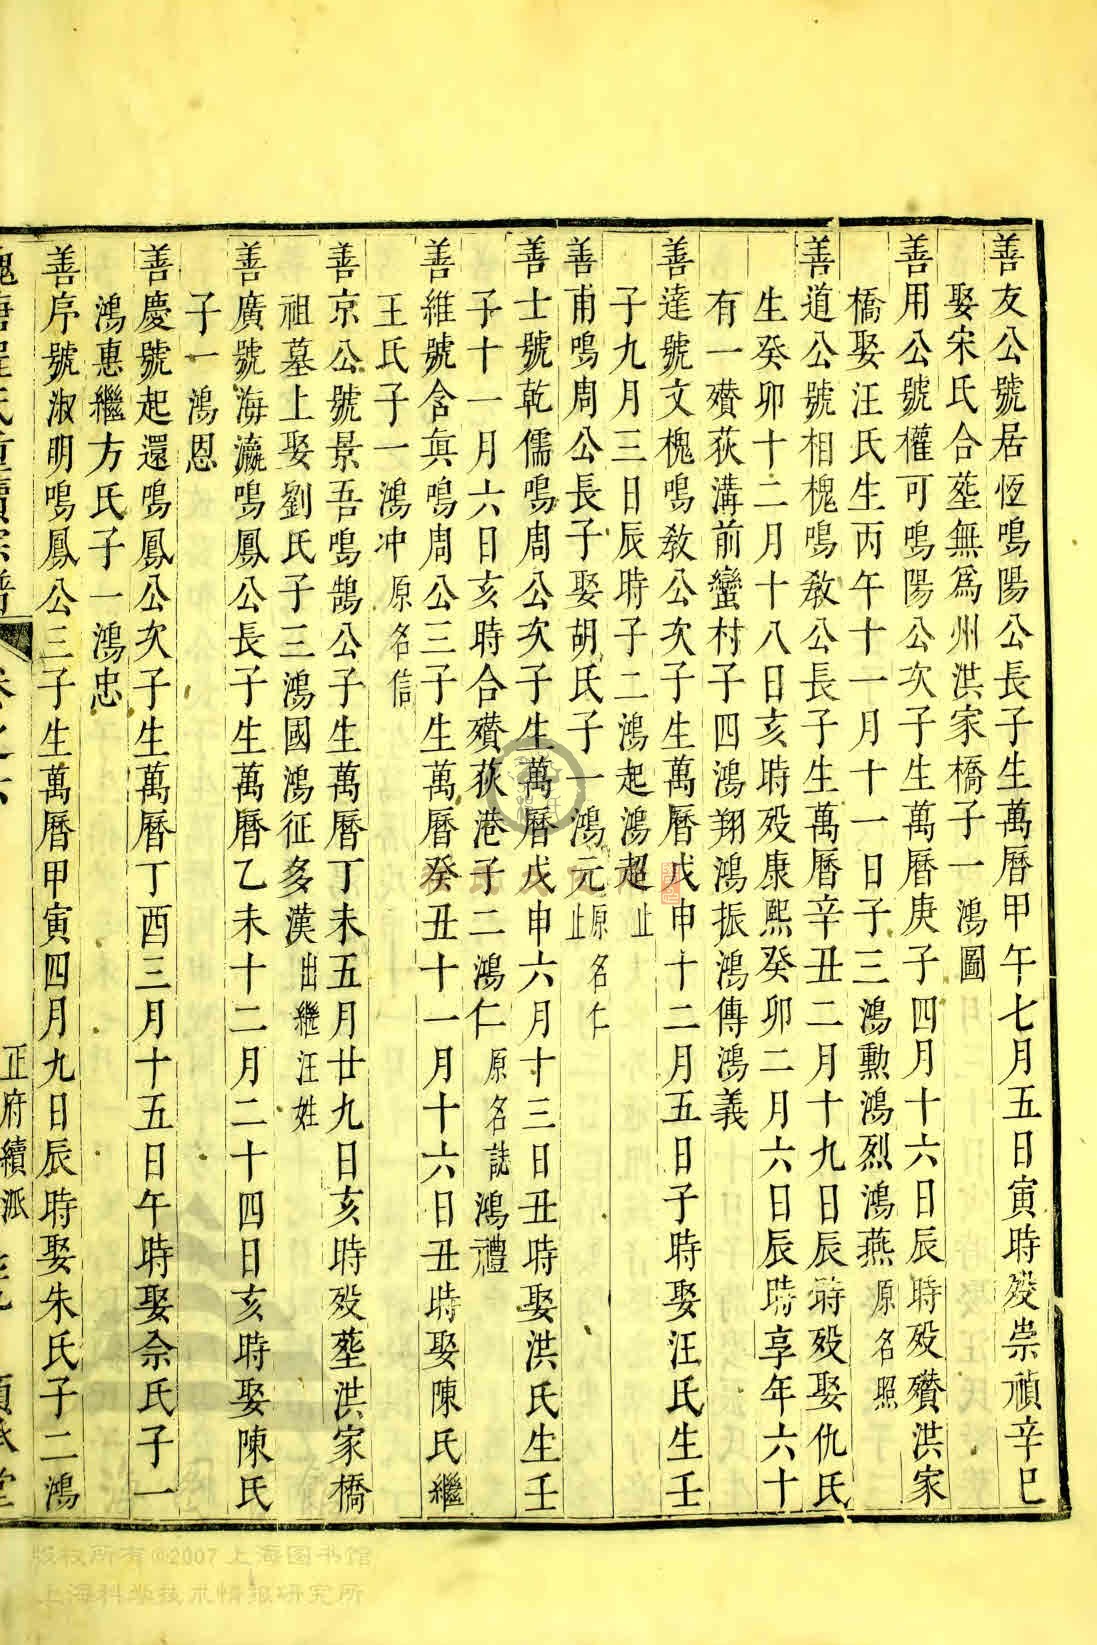 善友公號居恆鳴陽公長子生萬曆甲午七月五日寅時歿崇禎辛巳
娶宋氏合塟無爲州洪家橋子一鴻圖
善用公號權可鳴陽公次子生萬曆庚子四月十六日辰時歿殯洪家
橋娶汪氏生丙午十一月十一日子三鴻勲鴻烈鴻燕原名照
善道公號相槐鳴教公長子生萬曆辛丑二月十九日辰時歿娶仇氏
生癸卯十二月十八日亥時歿康熙癸卯二月六日辰時享年六十
有一殯荻溝前蠻村子四鴻翔鴻振鴻傳鴻義
善達號文槐鳴教公次子生萬曆戊申十二月五日子時娶汪氏生壬
子九月三日辰時子二鴻起鴻超止
善甫鳴周公長子娶胡氏子一鴻元原名仁止
善士號乾儒鳴周公次子生萬曆戊申六月十三日丑時娶洪氏生壬
子十一月六日亥時合殯荻港子二鴻仁原名誌鴻禮
善維號含眞鳴周公三子生萬曆癸丑十一月十六日丑時娶陳氏繼
王氏子一鴻冲原名信
善京公號景吾鳴鵠公子生萬曆丁未五月廿九日亥時歿塟洪家橋
祖墓上娶劉氏子三鴻國鴻征多漢出繼汪姓
善廣號海瀛鳴鳳公長子生萬曆乙未十二月二十四日亥時娶陳氏
子一鴻恩
善慶號起還鳴鳳公次子生萬曆丁酉三月十五日午時娶佘氏子一
鴻惠繼方氏子一鴻忠
善序號淑明鳴鳳公三子生萬曆甲寅四月九日辰時娶朱氏子二鴻
正府續派
版权所有©2007上海图书馆
上海科学技术情报研究所